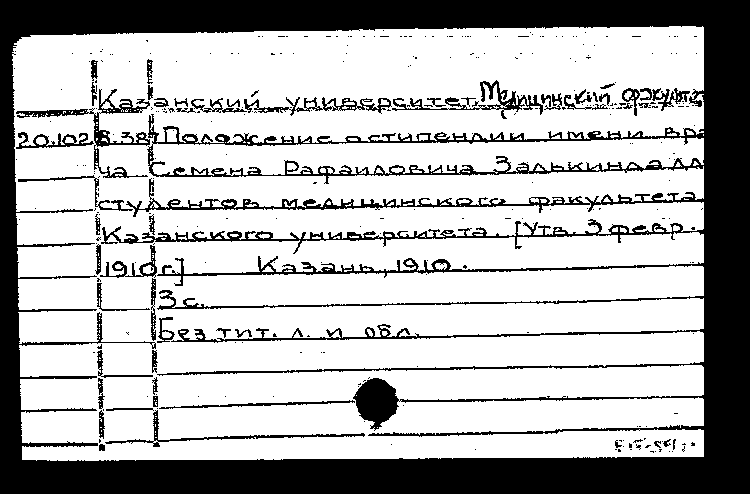 Казанский университет. Медицинский факультет
20.102 8.387 Положение о стипендии имени вра
ча Семена Рафаиловича Залькинда дл
студентов медицинского факультета
Казанского университета. [Утв. 3 февр.
1910г.] Казань, 1910.
3 с.
Без тит. л. и обл.